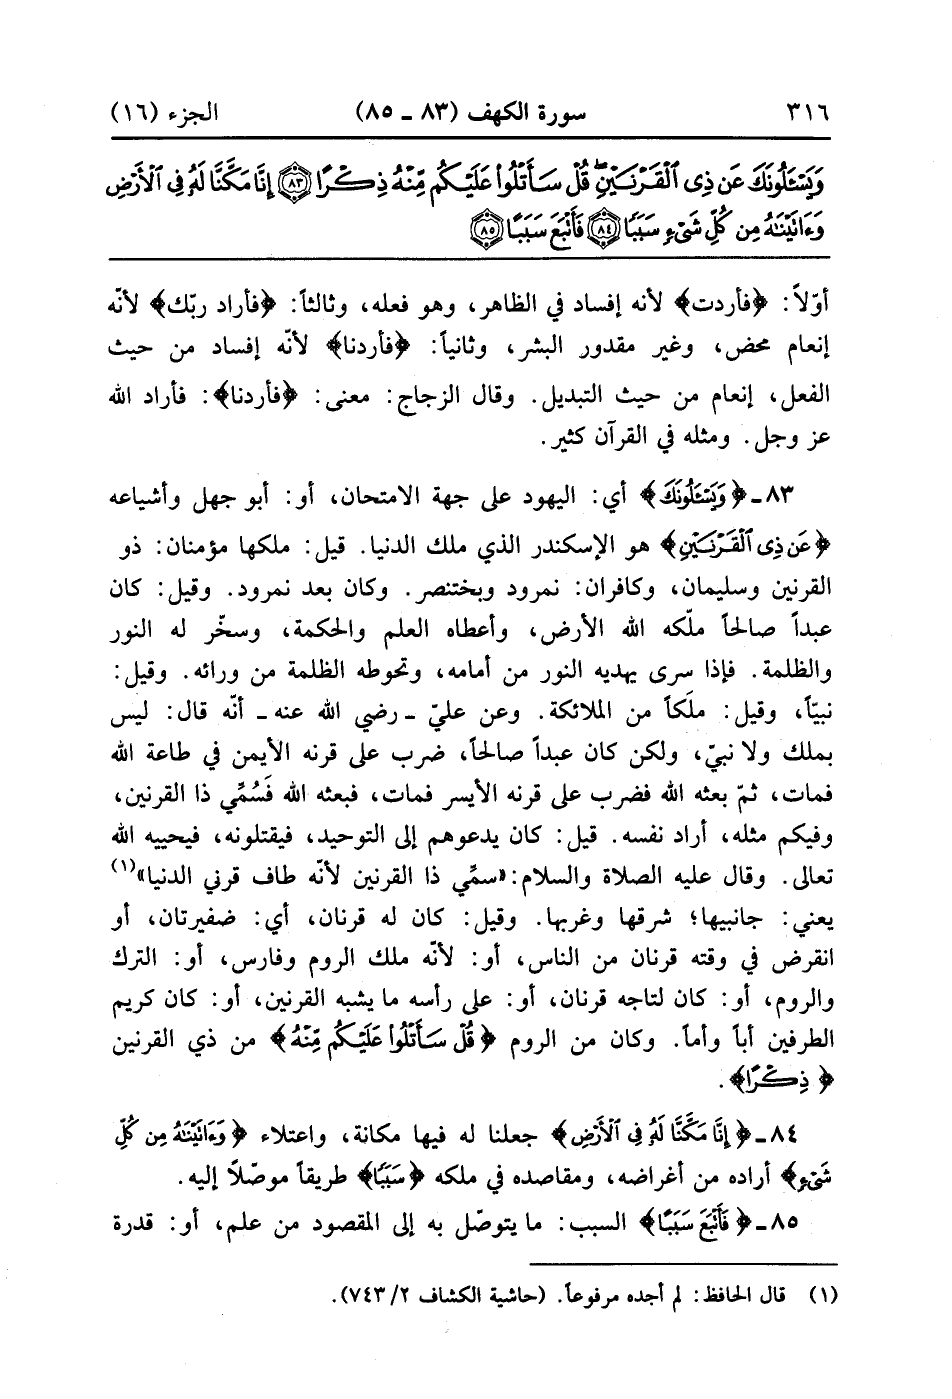 ٣١٦ سورة الكهف (٨٣ ـ ٨٥) الجزء (١٦)
وَيَسْـَٔلُونَكَ عَن ذِى ٱلْقَرْنَيْنِ ۖ قُلْ سَأَتْلُوا۟ عَلَيْكُم مِّنْهُ ذِكْرًا ﴿٨٣﴾ إِنَّا مَكَّنَّا لَهُۥ فِى ٱلْأَرْضِ
وَءَاتَيْنَٰهُ مِن كُلِّ شَىْءٍ سَبَبًا ﴿٨٤﴾ فَأَتْبَعَ سَبَبًا ﴿٨٥﴾
أوّلاً: ﴿فأردت﴾ لأنه إفساد في الظاهر، وهو فعله، وثالثاً: ﴿فأراد ربّك﴾ لأنّه
إنعام محض، وغير مقدور البشر، وثانياً: ﴿فأردنا﴾ لأنّه إفساد من حيث
الفعل، إنعام من حيث التبديل. وقال الزجاج: معنى: ﴿فأردنا﴾: فأراد الله
عز وجل. ومثله في القرآن كثير.
٨٣ـ ﴿وَيَسْـَٔلُونَكَ﴾ أي: اليهود على جهة الامتحان، أو: أبو جهل وأشياعه
﴿عَن ذِى ٱلْقَرْنَيْنِ﴾ هو الإسكندر الذي ملك الدنيا. قيل: ملكها مؤمنان: ذو
القرنين وسليمان، وكافران: نمرود وبختنصر. وكان بعد نمرود. وقيل: كان
عبداً صالحاً ملّكه الله الأرض، وأعطاه العلم والحكمة، وسخّر له النور
والظلمة. فإذا سرى يهديه النور من أمامه، وتحوطه الظلمة من ورائه. وقيل:
نبيّاً، وقيل: ملَكاً من الملائكة. وعن عليّ ـ رضي الله عنه ـ أنّه قال: ليس
بملك ولا نبيّ، ولكن كان عبداً صالحاً، ضرب على قرنه الأيمن في طاعة الله
فمات، ثمّ بعثه الله فضرب على قرنه الأيسر فمات، فبعثه الله فَسُمِّي ذا القرنين،
وفيكم مثله، أراد نفسه. قيل: كان يدعوهم إلى التوحيد، فيقتلونه، فيحييه الله
تعالى. وقال عليه الصلاة والسلام: «سمِّي ذا القرنين لأنّه طاف قرني الدنيا»(١)
يعني: جانبيها؛ شرقها وغربها. وقيل: كان له قرنان، أي: ضفيرتان، أو
انقرض في وقته قرنان من الناس، أو: لأنّه ملك الروم وفارس، أو: الترك
والروم، أو: كان لتاجه قرنان، أو: على رأسه ما يشبه القرنين، أو: كان كريم
الطرفين أباً وأماً. وكان من الروم ﴿قُلْ سَأَتْلُوا۟ عَلَيْكُم مِّنْهُ﴾ من ذي القرنين
﴿ذِكْرًا﴾.
٨٤ـ ﴿إِنَّا مَكَّنَّا لَهُۥ فِى ٱلْأَرْضِ﴾ جعلنا له فيها مكانة، واعتلاء ﴿وَءَاتَيْنَٰهُ مِن كُلِّ
شَىْءٍ﴾ أراده من أغراضه، ومقاصده في ملكه ﴿سَبَبًا﴾ طريقاً موصّلاً إليه.
٨٥ـ ﴿فَأَتْبَعَ سَبَبًا﴾ السبب: ما يتوصّل به إلى المقصود من علم، أو: قدرة
(١) قال الحافظ: لم أجده مرفوعاً. (حاشية الكشاف ٢/ ٧٤٣).